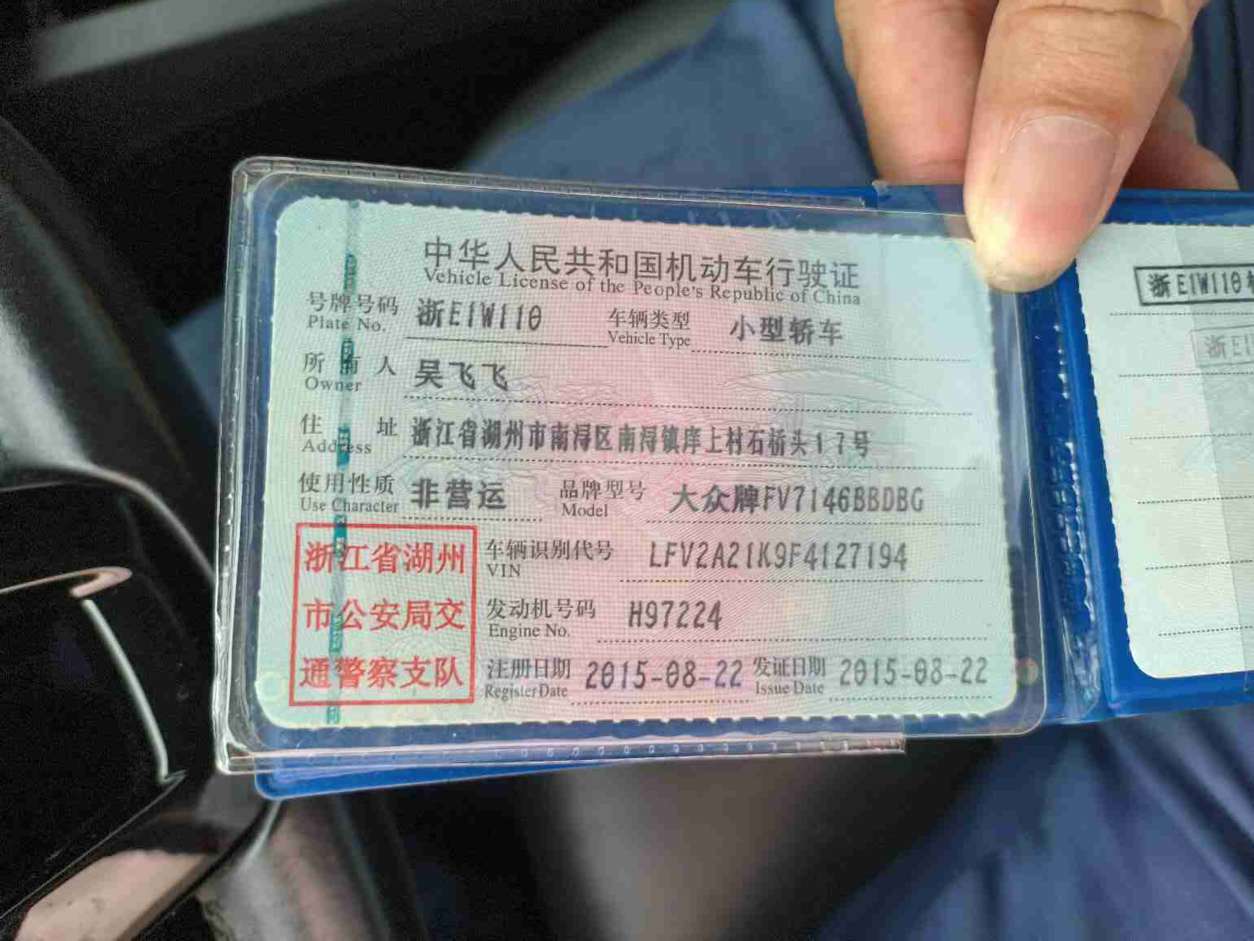 中华人民共和国机动车行驶证
Vehicle License of the People's Republic of China
号牌号码 浙E1W110 车辆类型 小型轿车
Plate No. Vehicle Type
所有人 吴飞飞
Owner
住址 浙江省湖州市南浔区南浔镇庠上村石桥头17号
Address
使用性质 非营运 品牌型号 大众牌FV7146BBDBG
Use Character Model
浙江省湖州
市公安局交
通警察支队
车辆识别代号 LFV2A21K9F4127194
VIN
发动机号码 H97224
Engine No.
注册日期 2015-08-22 发证日期 2015-08-22
Register Date Issue Date
浙E1W110
浙E1